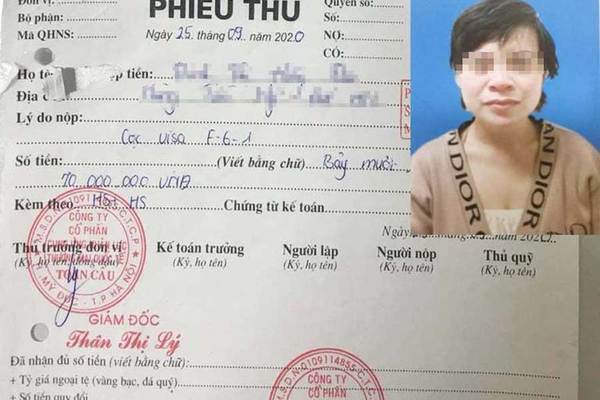 Đơn vị:
PHIẾU THU
Quyển số:
Bộ phận:
Số:
Mã QHNS:
Ngày 25 tháng 09 năm 2020
NỢ:
CÓ:
Họ tê
p tiền:
Địa c
Lý do nộp:
Cọc visa F-6-1
Số tiền:
(Viết bằng chữ)
Bảy mươi
70 000 000 VNĐ
Kèm theo: HS
Chứng từ kế toán.
Ngày
Thủ trưởng đơn vị
Kế toán trưởng
Người lập
Người nộp
Thủ quỹ
(Ký, họ tên, đóng dấu)
(Ký, họ tên)
(Ký, họ tên)
(Ký, họ tên)
(Ký, họ tên)
CÔNG TY
CỔ PHẦN
TOÀN CẦU
MỸ ĐỨC - T.P HÀ NỘI
GIÁM ĐỐC
Thân Thị Lý
Đã nhận đủ số tiền (viết bằng chữ):
+ Tỷ giá ngoại tệ (vàng bạc, đá quý)
+ Số tiền quy đổi
M.S.D.N:0109114855-C.T.C.P
CÔNG TY
CỔ PHẦN
AN DIOR
AN DIOR